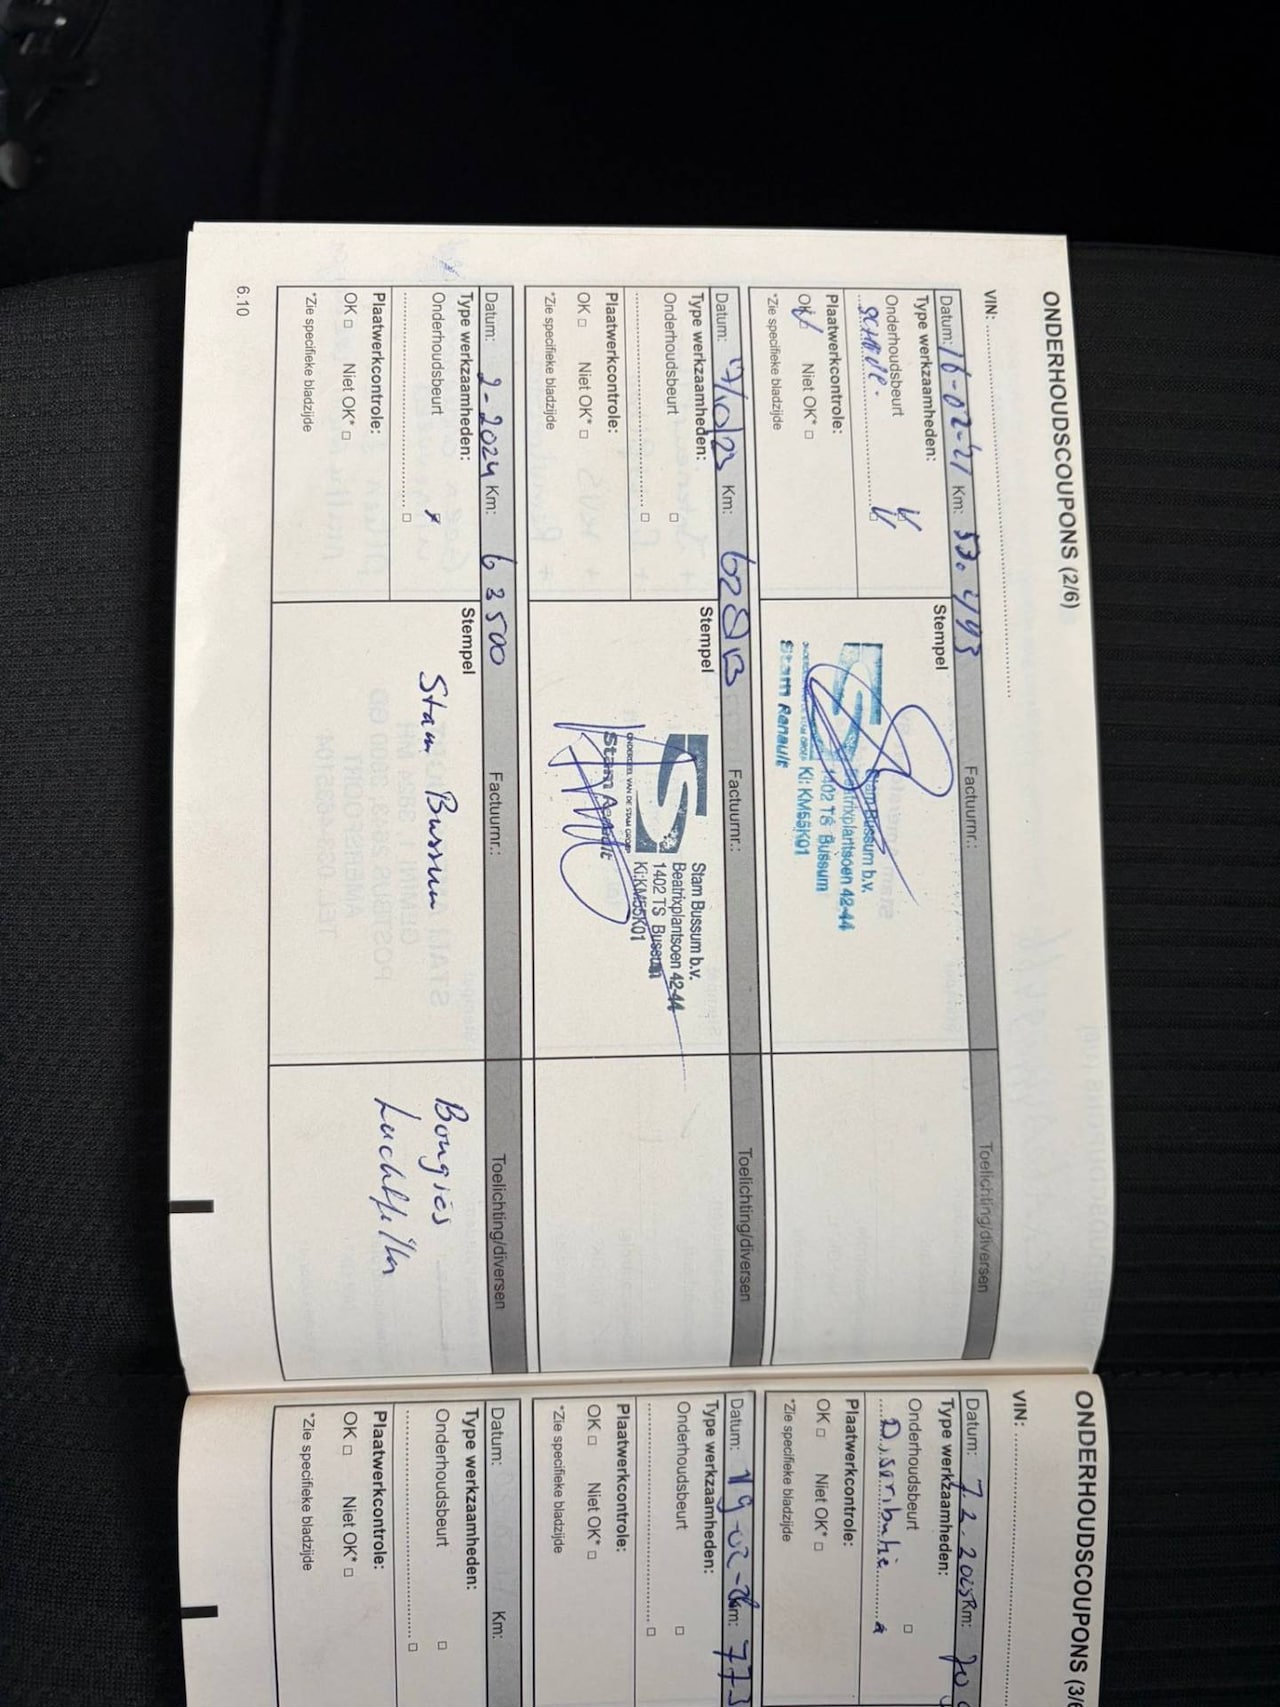 ONDERHOUDSCOUPONS (2/6)
VIN:
Datum: 16-02-21 Km: 53.493 Factuurnr.: Toelichting/diversen
Type werkzaamheden: Stempel
Onderhoudsbeurt
Plaatwerkcontrole:
OK □ Niet OK* □
*Zie specifieke bladzijde
Stam Bussum b.v.
Beatrixplantsoen 42-44
1402 TS Bussum
KI: KM55K01
Stam Renault
Datum: 7/10/23 Km: Factuurnr.: Toelichting/diversen
Type werkzaamheden: Stempel
Onderhoudsbeurt □
□
Plaatwerkcontrole:
OK □ Niet OK* □
*Zie specifieke bladzijde
Stam Bussum b.v.
Beatrixplantsoen 42-44
1402 TS Bussum
KI:KM55K01
ONDERDEEL VAN DE STAM GROEP
Stam Renault
Datum: 2-2024 Km: 63500 Factuurnr.: Toelichting/diversen
Type werkzaamheden: Stempel
Onderhoudsbeurt x
□
Plaatwerkcontrole:
OK □ Niet OK* □
*Zie specifieke bladzijde
Stam Bussum
Bougiës
Luchtfilter
6.10
ONDERHOUDSCOUPONS (3/6
VIN:
Datum: 7.2.2025 Km:
Type werkzaamheden:
Onderhoudsbeurt □
Distributie
Plaatwerkcontrole:
OK □ Niet OK* □
*Zie specifieke bladzijde
Datum: 19-02-26 Km: 773
Type werkzaamheden:
Onderhoudsbeurt □
□
Plaatwerkcontrole:
OK □ Niet OK* □
*Zie specifieke bladzijde
Datum: Km:
Type werkzaamheden:
Onderhoudsbeurt □
□
Plaatwerkcontrole:
OK □ Niet OK* □
*Zie specifieke bladzijde